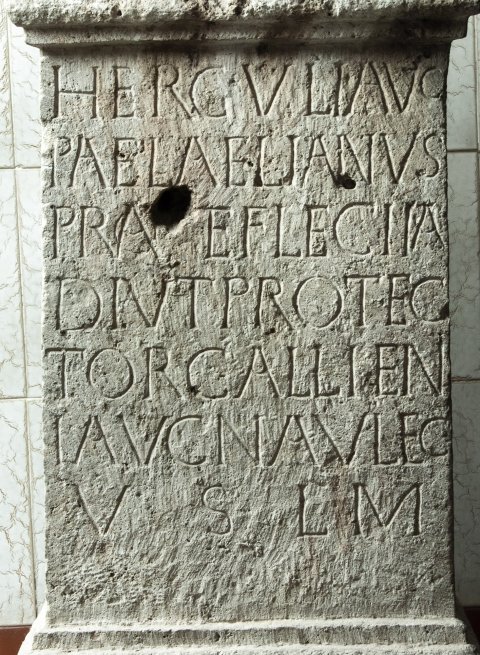 HERCVLI AVG
P AEL AELIANVS
PRAEF LEG II A
DIVT PROTEC
TOR GALLIEN
I AVG N A V LEG
V S L M